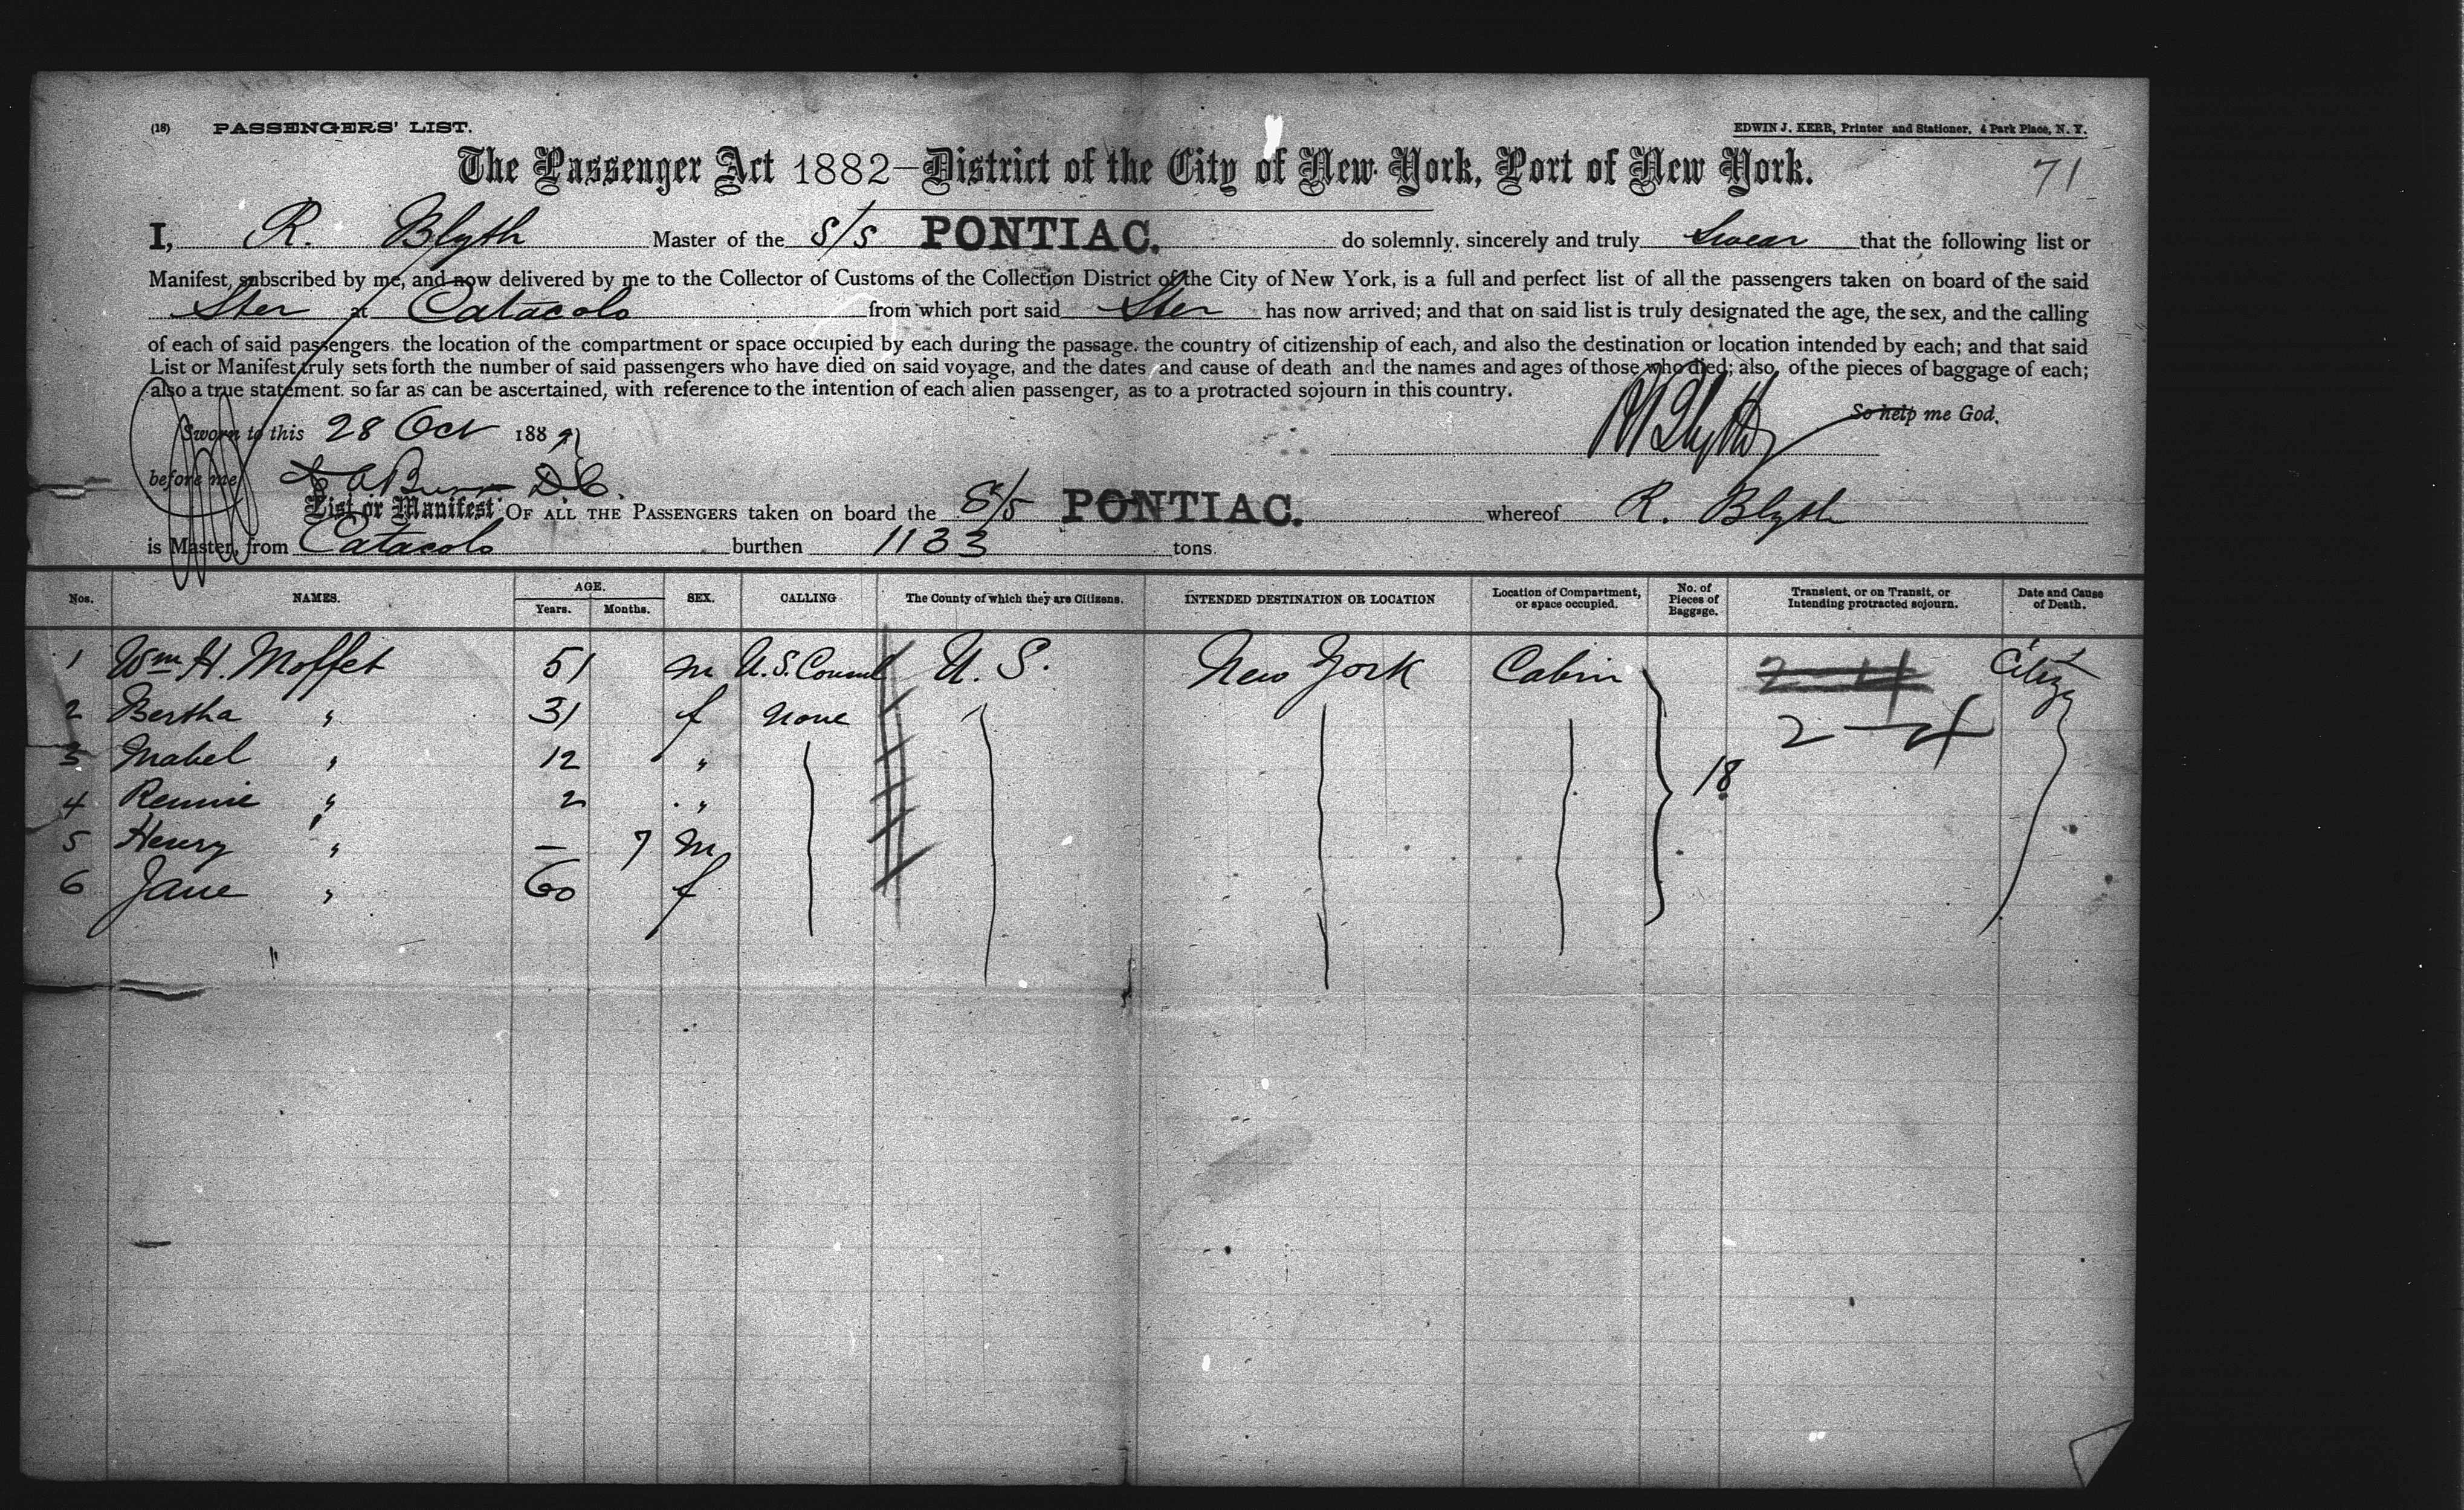 (18) PASSENGERS' LIST. EDWIN J. KERR, Printer and Stationer, 4 Park Place, N. Y.
The Passenger Act 1882—District of the City of New York, Port of New York. 71
I, R. Blyth Master of the S/S PONTIAC. do solemnly, sincerely and truly Swear that the following list or
Manifest, subscribed by me, and now delivered by me to the Collector of Customs of the Collection District of the City of New York, is a full and perfect list of all the passengers taken on board of the said
Ster at Catacolo from which port said Ster has now arrived; and that on said list is truly designated the age, the sex, and the calling
of each of said passengers. the location of the compartment or space occupied by each during the passage. the country of citizenship of each, and also the destination or location intended by each; and that said
List or Manifest truly sets forth the number of said passengers who have died on said voyage, and the dates and cause of death and the names and ages of those who died; also, of the pieces of baggage of each;
also a true statement. so far as can be ascertained, with reference to the intention of each alien passenger, as to a protracted sojourn in this country.
So help me God.
Sworn to this 28 Oct 188 RBlyth
before me D C.
List or Manifest OF ALL THE PASSENGERS taken on board the S/S PONTIAC. whereof R. Blyth
is Master, from Catacolo burthen 1133 tons.
Nos. NAMES. AGE. Years. Months. SEX. CALLING The County of which they are Citizens. INTENDED DESTINATION OR LOCATION Location of Compartment, or space occupied. No. of Pieces of Baggage. Transient, or on Transit, or Intending protracted sojourn. Date and Cause of Death.
1 Wm H. Moffet 51 m U.S. Consul U. S. New York Cabin 2—4 Citizn
2 Bertha " 31 f None 2—4
3 Mabel " 12 "
4 Rennie " 2 " 18
5 Henry " — 7 m
6 Jane " 60 f